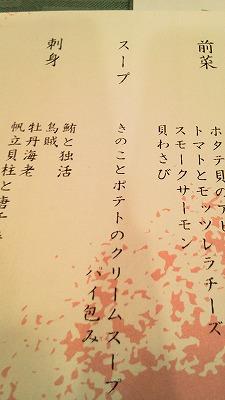 前菜
ホタテ貝の
トマトとモッツレラチーズ
スモークサーモン
貝わさび
スープ
きのことポテトのクリームスープ
パイ包み
刺身
鮪と独活
烏賊
牡丹海老
帆立貝柱と唐